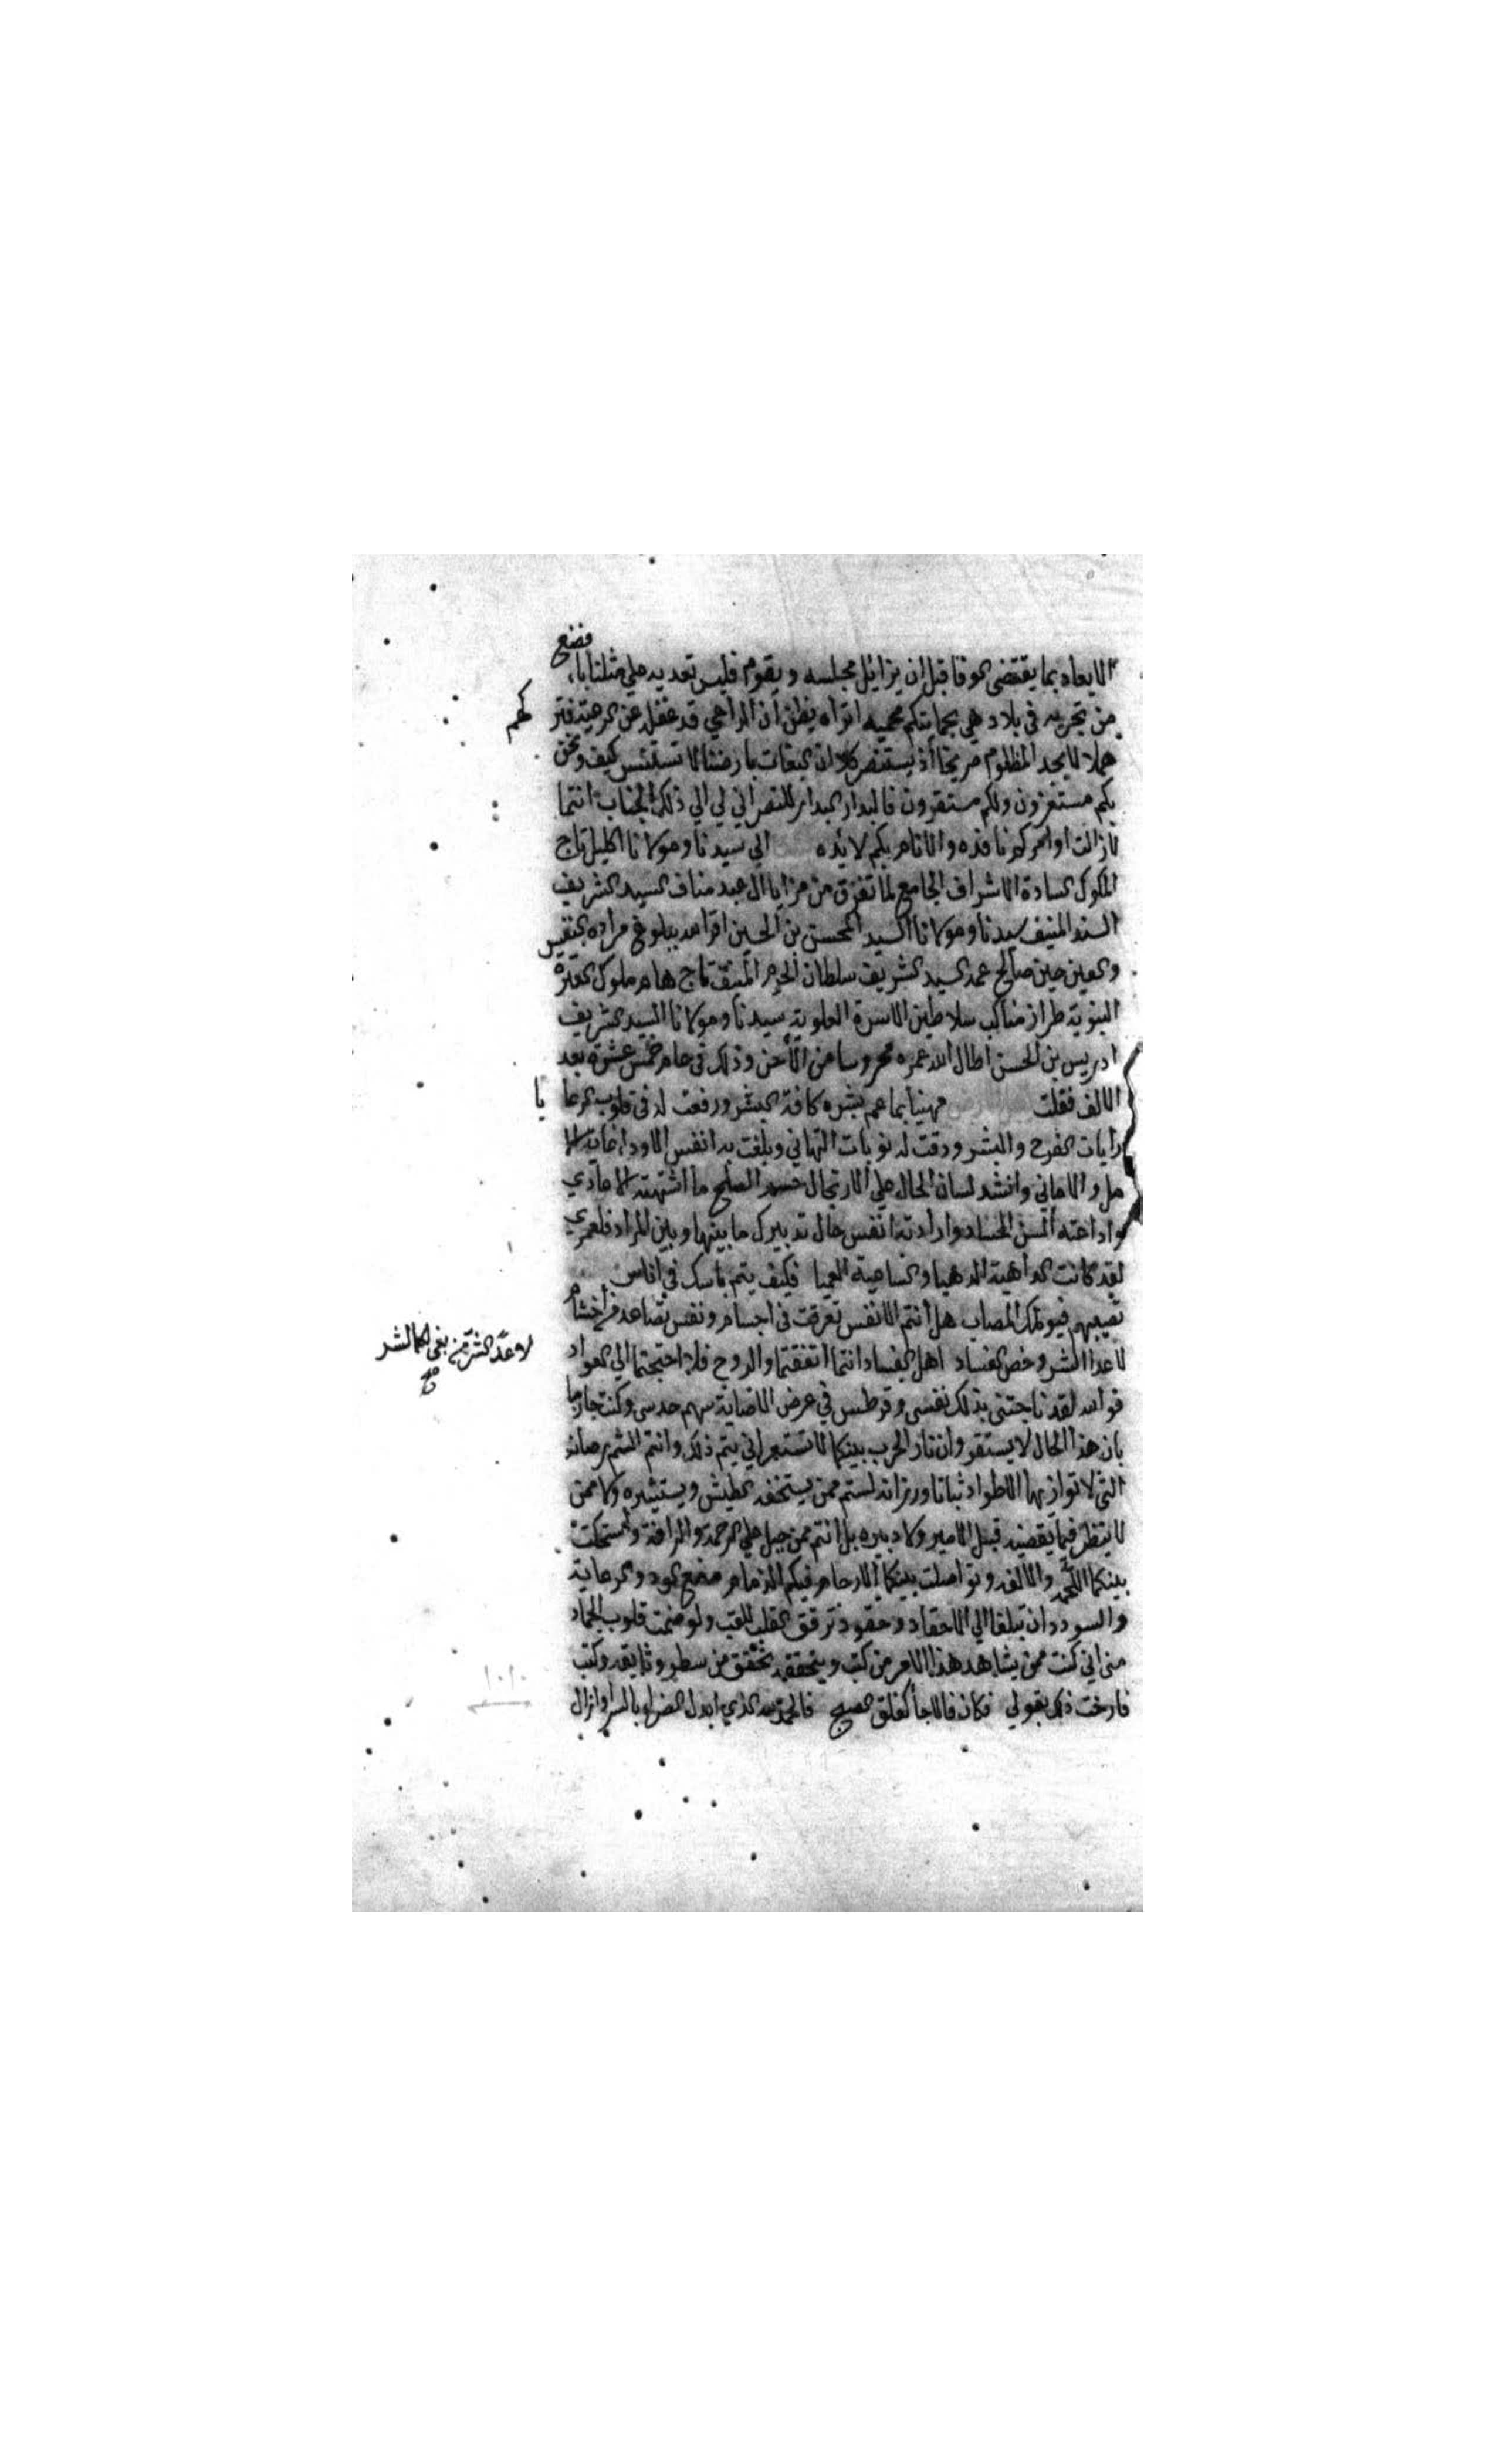 الابعاد بما يقتضى الوفا قبل ان يزايل مجلسه ويقوم فليس تعديه على مثلنا با فضع
من تجريه في بلاد هي بحمايتكم محميه اتراه يظن ان الراعي قد غفل عن الرعية فتركهم
هملا لا يجد المظلوم صريخا اذ يستنصر كلا ان البغات بارضنا لا تستنسر كيف ونحن
بكم مستعزون ولكم مستقرون فالبدار البدار للنصر الي ذلك الجناب انتما
لا زالت اوامركم نافذه والانام بكم لائذه الي سيدنا ومولانا اكليل تاج
الملوك السادة الاشراف الجامع لما تفرق من مزايا ال عبد مناف السيد الشريف
السند المنيف سيدنا ومولانا السيد المحسن بن الحسين اقر الله ببلوغ مراده النفس
والعين حين صالح عمه السيد الشريف سلطان الحرم المنيف تاج هام ملوك العترة
النبوية طراز مناكب سلاطين الاسرة العلوية سيدنا ومولانا السيد الشريف
ادريس بن الحسن اطال الله عمره محروسا من الاحن وذلك في عام خمس عشرة بعد
الالف فقلت مهنيا بما عم بشره كافة البشر ورفعت له في قلوب الرعايا
رايات الفرح والبشر ودقت له نوبات التهاني وبلغت به انفس الاوداء غاية الا
مل والاماني وانشد لسان الحال على الارتجال حسم الصلح ما اشتهته الاعادي
واذاعته السن الحساد وارادته انفس حال تدبيرك ما بينها وبين المراد فلعمري
لقد كانت الداهية الدهيا العميا فكيف يتم باسك في اناس
تصيبهم فيولمك المصاب هل انتم الا نفس تفرقت في اجسام ونفس تصاعد من
لا عدا الشر وخص الفساد اهل الفساد انتما اتفقتما والروح فلا احتجتما الي العواد
لا عدا الشر من بغى لكما الشر
صح
فوالله لقد ناجتني بذلك نفسي وقرطس في غرض الاصابة سهم حدسي وكنت جازما
بان هذا الحال لا يستقر وان نار الحرب بينكما لا تستعر اني يتم ذلك وانتم الشم رصانة
التي لا توازيها الاطواد ثباتا ورزانة لستم ممن يستخفه الطيش ويستشيره ولا ممن
لا ينظر فيما يقضيه قبيل الامير ولا دبيره بل انتم ممن جبل على الرحمة والرافة واستحكمت
بينكما اللحمة والالفة وتواصلت بينكما الارحام فيكم الذمام الود والرعاية
والسودد ان تبلغا الي الاحقاد وحقود ترقق القلب للقلب ولو ضمنت قلوب الجماد
مني اني كنت ممن يشاهد هذا الامر من كثب ويتحققه تحقق من سطر وثايقه وكتب
فارخت ذلك بقولي فكان فالا جا كفلق الصبح فالحمد لله الذي ابدل الضراء بالسرا وازال
١٠١٠